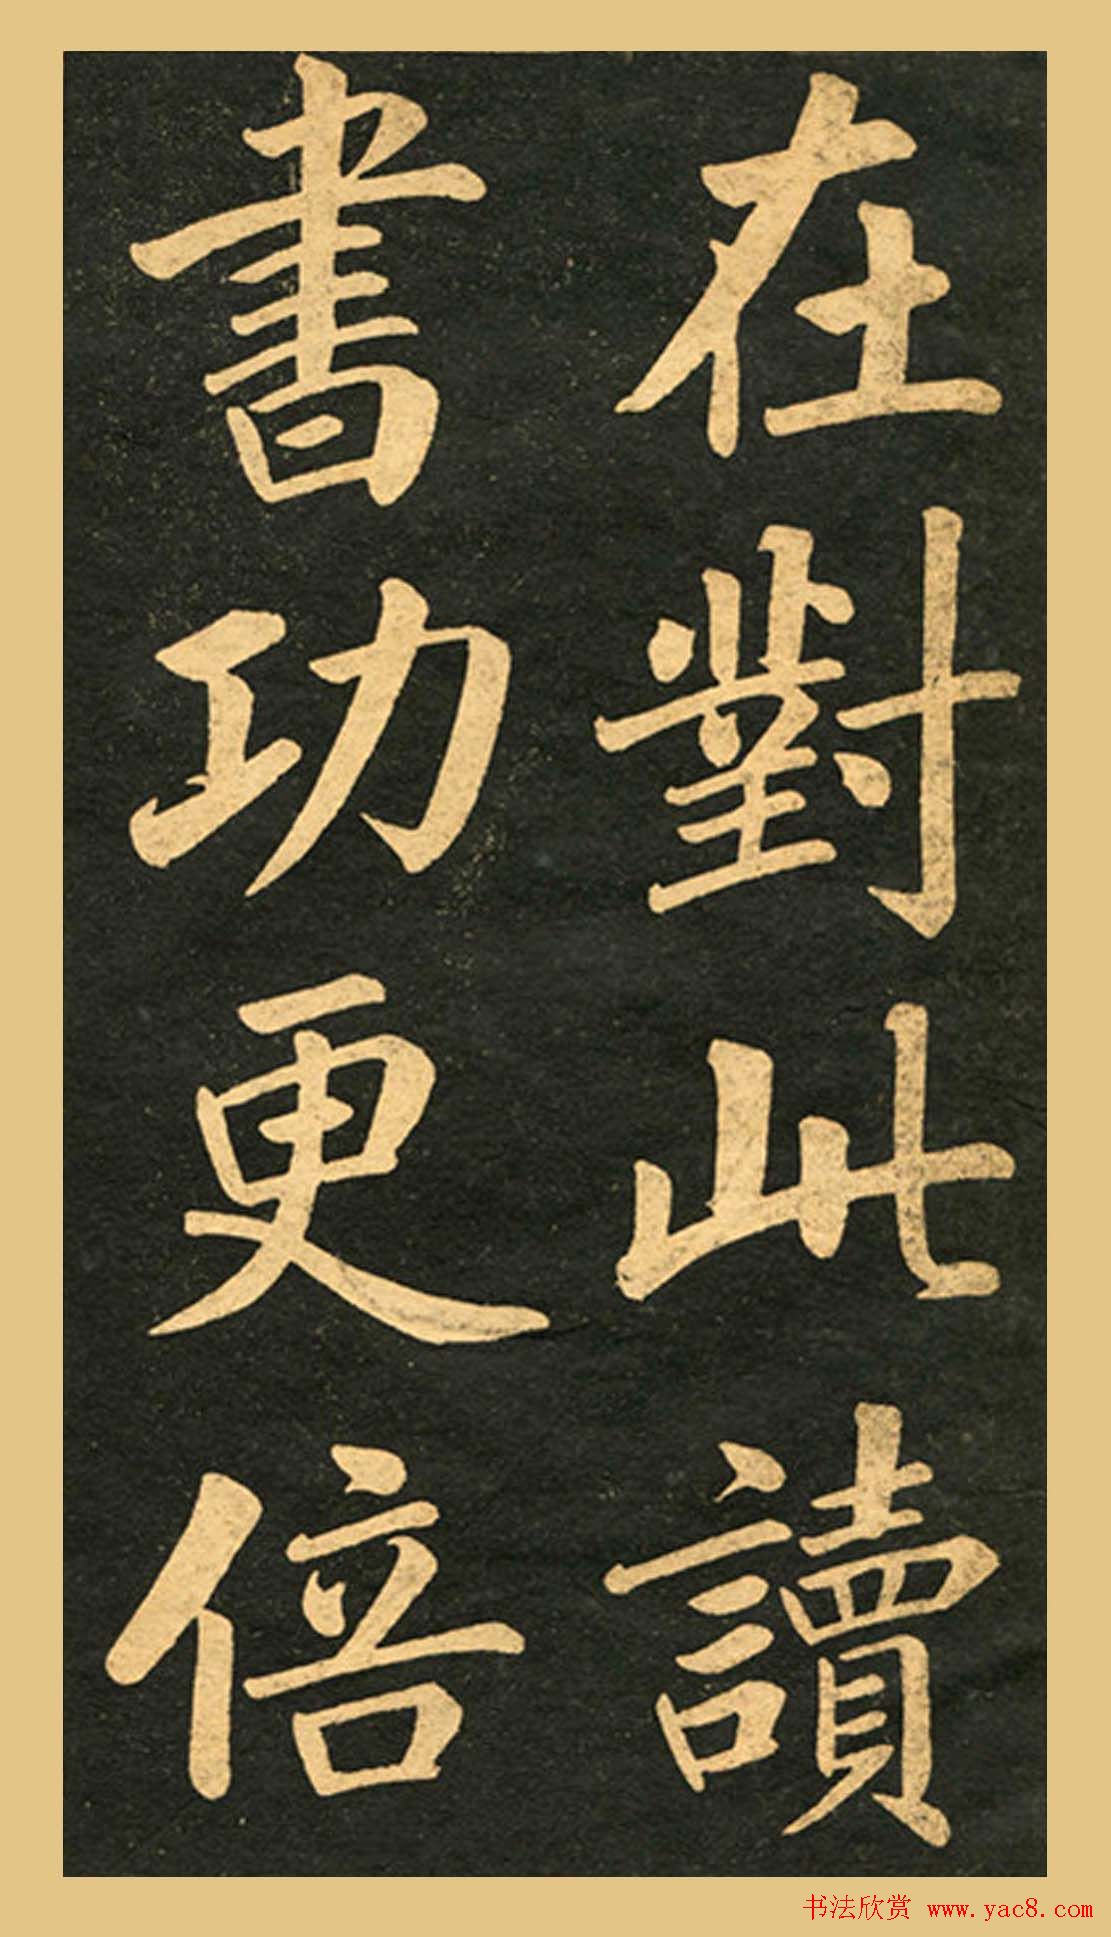 在對此讀
書功更倍
书法欣赏 www.yac8.com